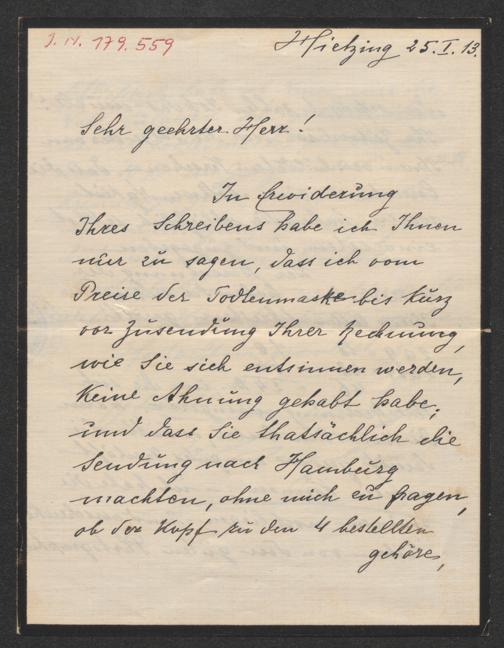 J. N. 179.559
Hietzing 25.I.13.
Sehr geehrter Herr!
In Erwiderung
Ihres Schreibens habe ich Ihnen
nur zu sagen, dass ich vom
Preise der Todtenmaske bis kurz
vor Zusendung Ihrer Rechnung,
wie Sie sich entsinnen werden,
keine Ahnung gehabt habe;
und dass Sie thatsächlich die
Sendung nach Hamburg
machten, ohne mich zu fragen,
ob der Kopf zu den 4 bestellten
gehöre,